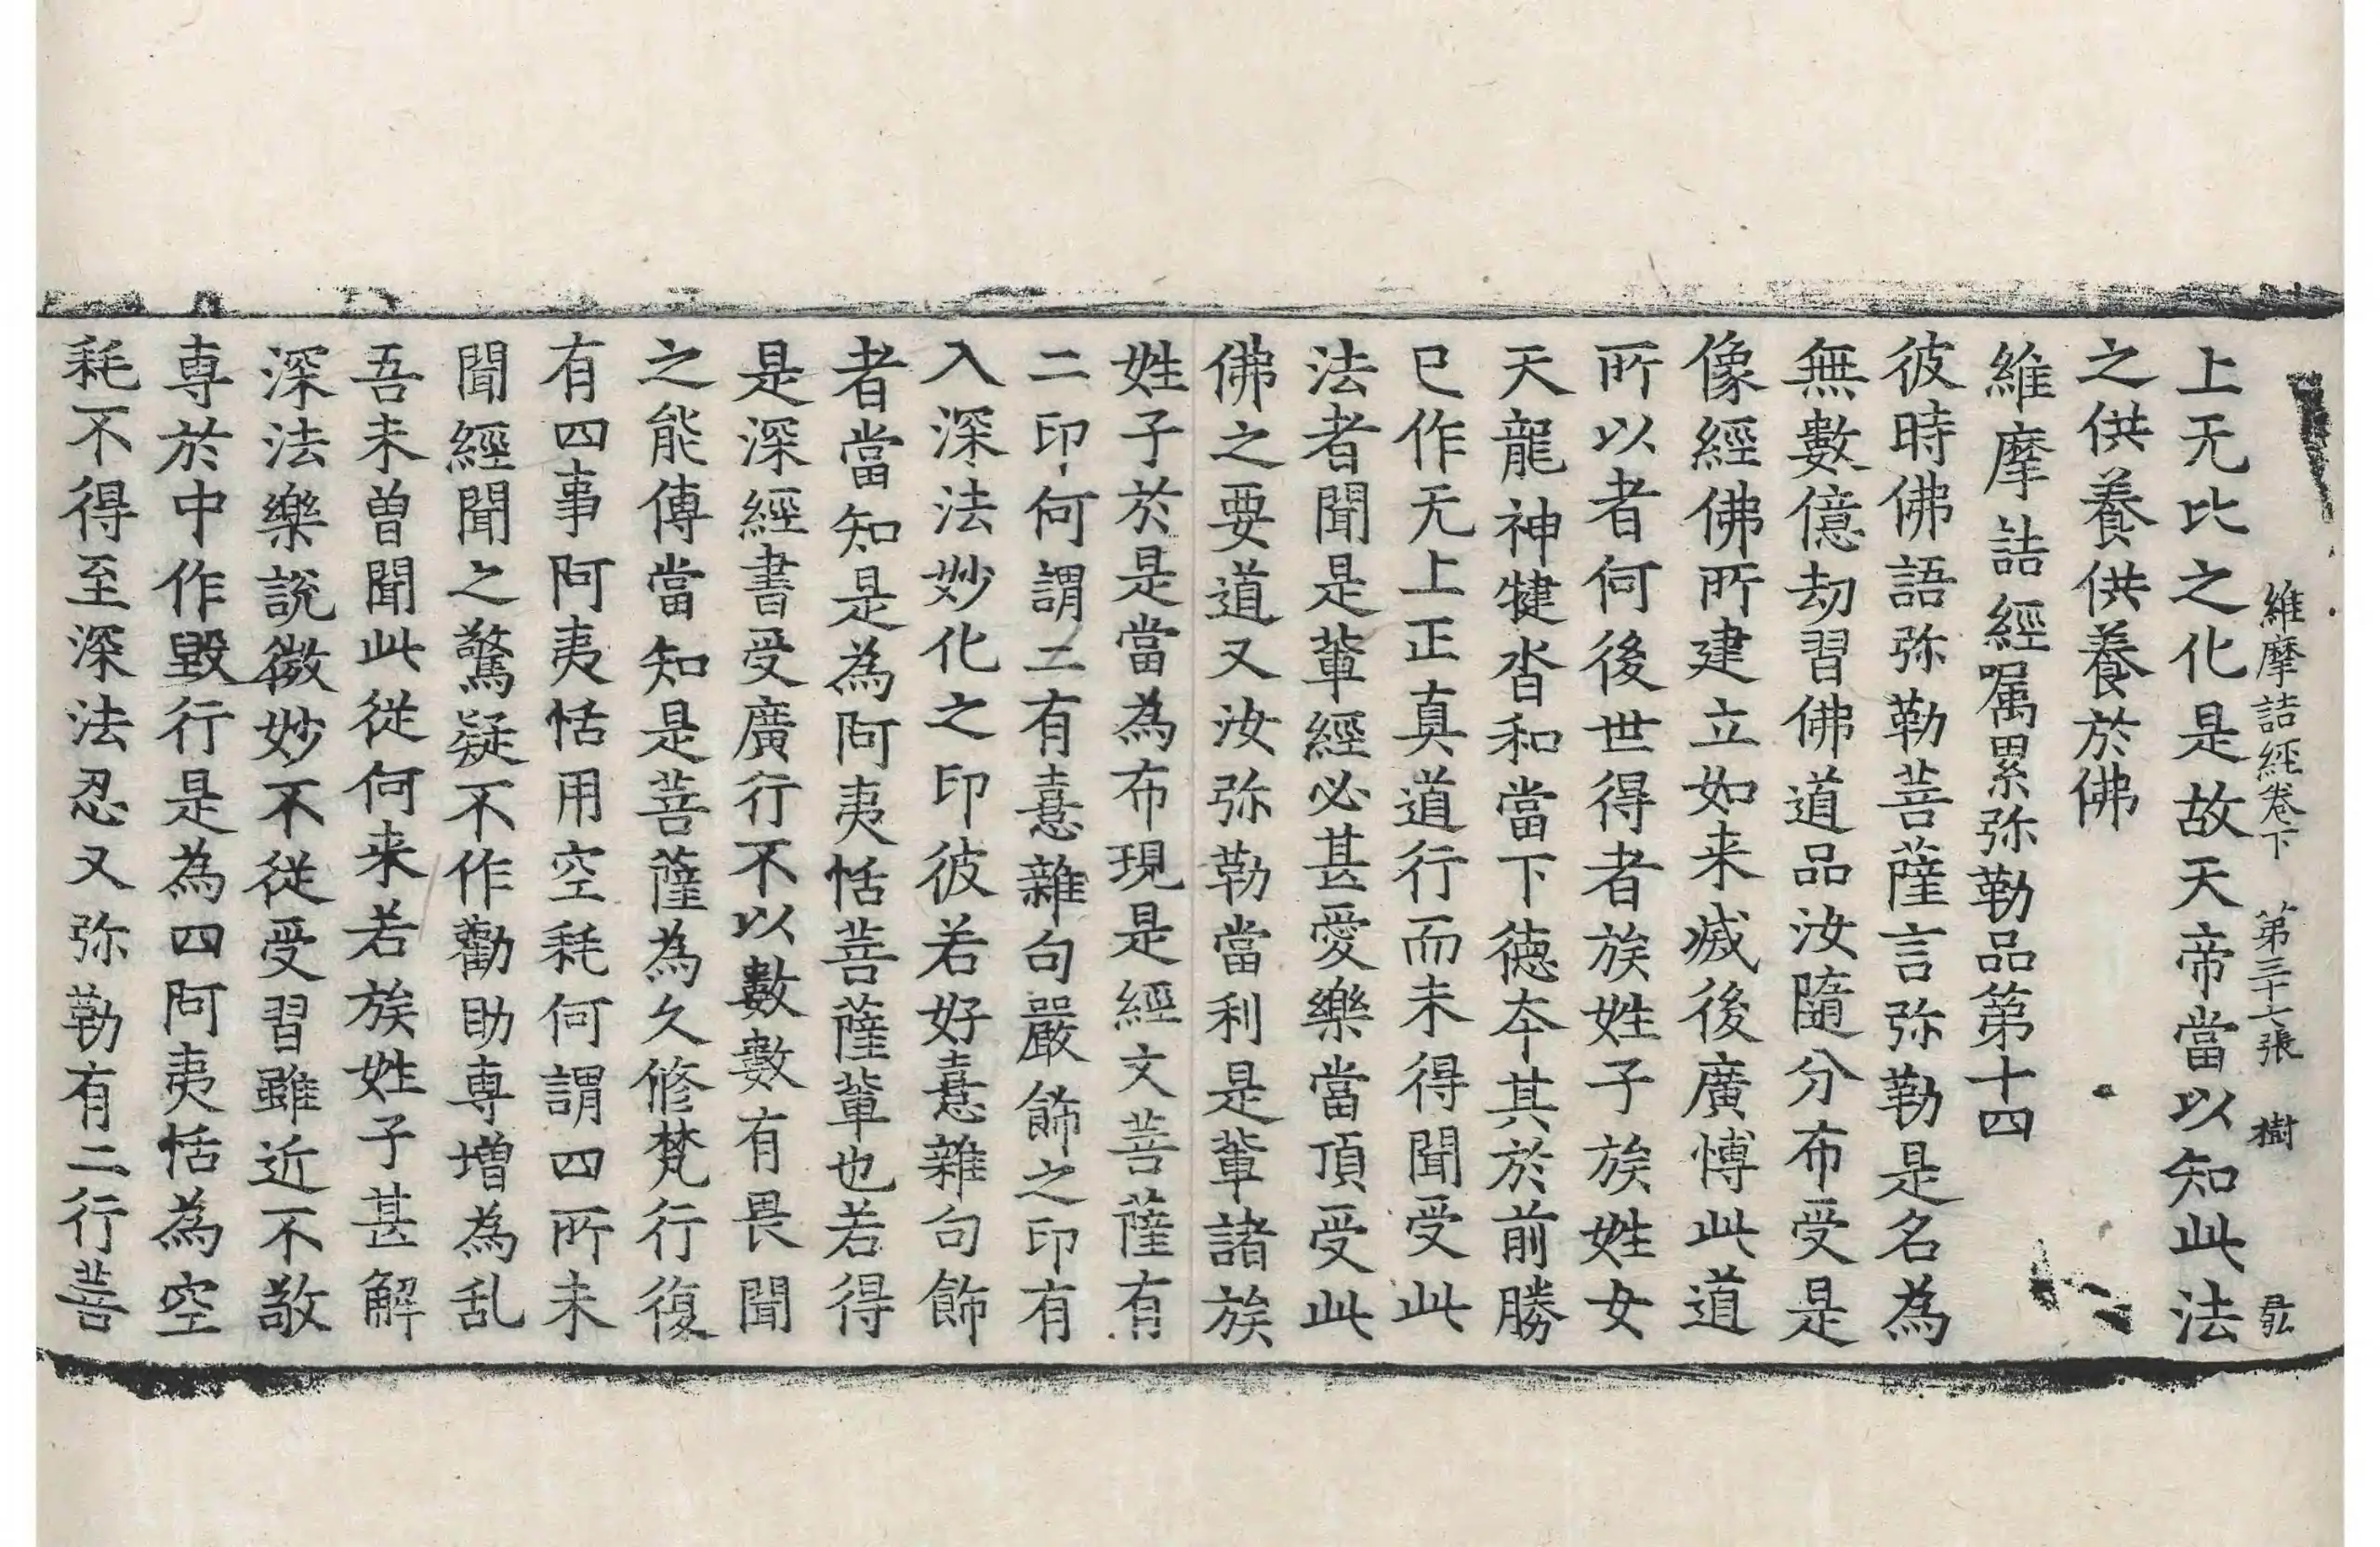 維摩詰經卷下 第三十七張 樹
上无比之化是故天帝當以知此法
之供養供養於佛
維摩詰經嘱累弥勒品第十四
彼時佛語弥勒菩薩言弥勒是名為
無數億劫習佛道品汝隨分布受是
像經佛所建立如来滅後廣愽此道
所以者何後世得者族姓子族姓女
天龍神犍沓和當下徳夲其於前勝
已作无上正真道行而未得聞受此
法者聞是軰經必甚愛樂當頂受此
佛之要道又汝弥勒當利是軰諸族
姓子於是當為布現是經文菩薩有
二印何謂二有憙雜句嚴餝之印有
入深法妙化之印彼若好憙雜句餝
者當知是為阿夷恬菩薩軰也若得
是深經書受廣行不以數數有畏聞
之能傳當知是菩薩為久修梵行復
有四事阿夷恬用空耗何謂四所未
聞經聞之驚疑不作勸助専增為乱
吾未曽聞此従何来若族姓子甚解
深法樂說微妙不従受習雖近不敬
専於中作毀行是為四阿夷恬為空
耗不得至深法忍又弥勒有二行菩